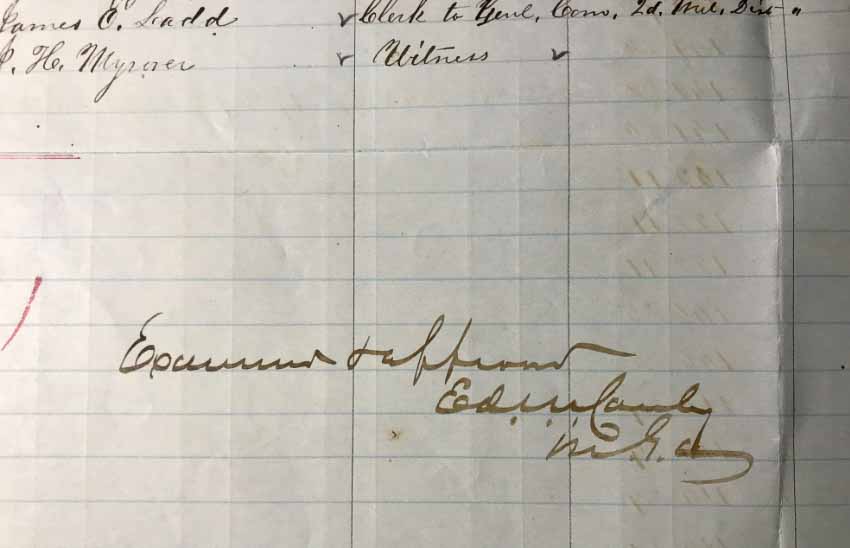 James C. Ladd ✓ Clerk to Genl. Com. 2d. Mil. Dist. "
P. H. Myrover ✓ Witness ✓
Examined & approved
Ed. R. S. Canby